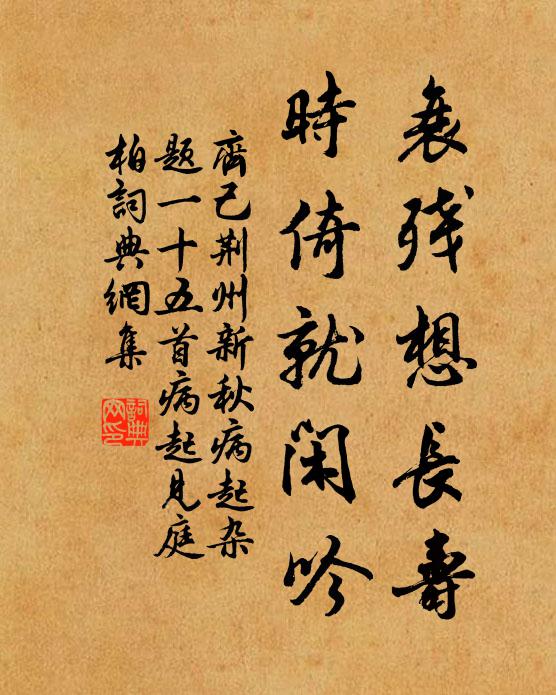 衰残想長壽
時倚就閑吟
齊己荆州新秋病起杂
题一十五首病起见庭
柏詞典網集
詞典
网印